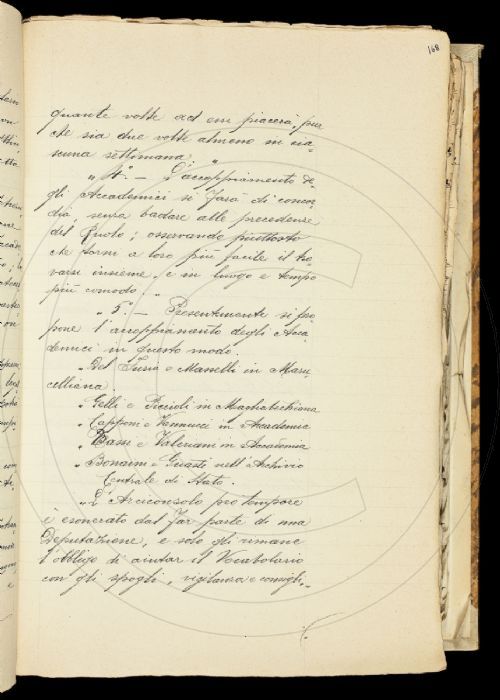 168
quante volte ad essi piacerà, pur
che sia due volte almeno in cia-
scuna settimana. "
" 4.° — L'accoppiamento de-
gli Accademici si farà di concor-
dia, senza badare alle precedenze
del Ruolo; osservando piuttosto
che torni a loro più facile il tro-
varsi insieme, e in luogo e tempo
più comodo. "
" 5.° — Presentemente si pro-
pone l'accoppiamento degli Acca-
demici in questo modo.
" Del Furia e Masselli in Maru-
celliana.
" Gelli e Riccioli in Magliabechiana
" Capponi e Vannucci in Accademia
" Bassi e Valeriani in Accademia
" Bonaini e Guasti nell'Archivio
Centrale di Stato.
" L'Arciconsolo pro tempore
è esonerato dal far parte di una
Deputazione, e solo gli rimane
l'obbligo di aiutar il Vocabolario
con gli spogli, vigilanza e consigli. "